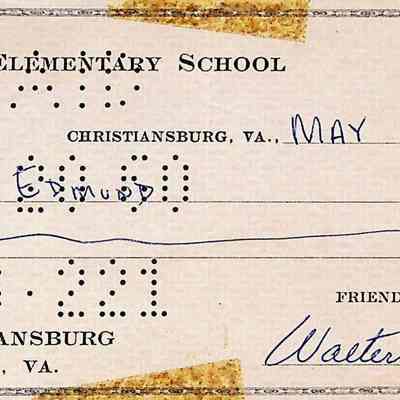 ELEMENTARY SCHOOL
CHRISTIANSBURG, VA., MAY
EDMUND
221
FRIEND
ANSBURG
Walter
, VA.